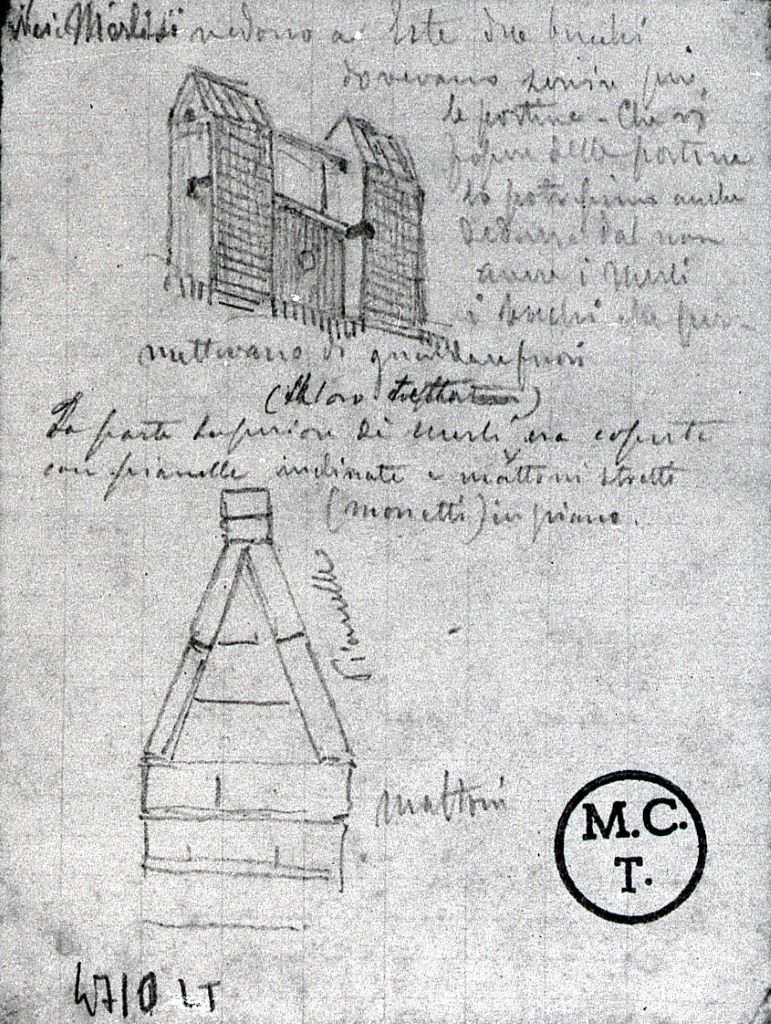 Nei Merli si vedono ad Este due buchi
dovevano servire per
le portine - Che vi
delle portine
si anche
dal non
avere i Merli
i buchi che per-
mettevano di guardare fuori
(
La parte superiore di merli era coperta
con pianelle inclinate e mattoni stretti
(monetti) in piano.
Pianelle
mattoni
M.C.
T.
4710 LT